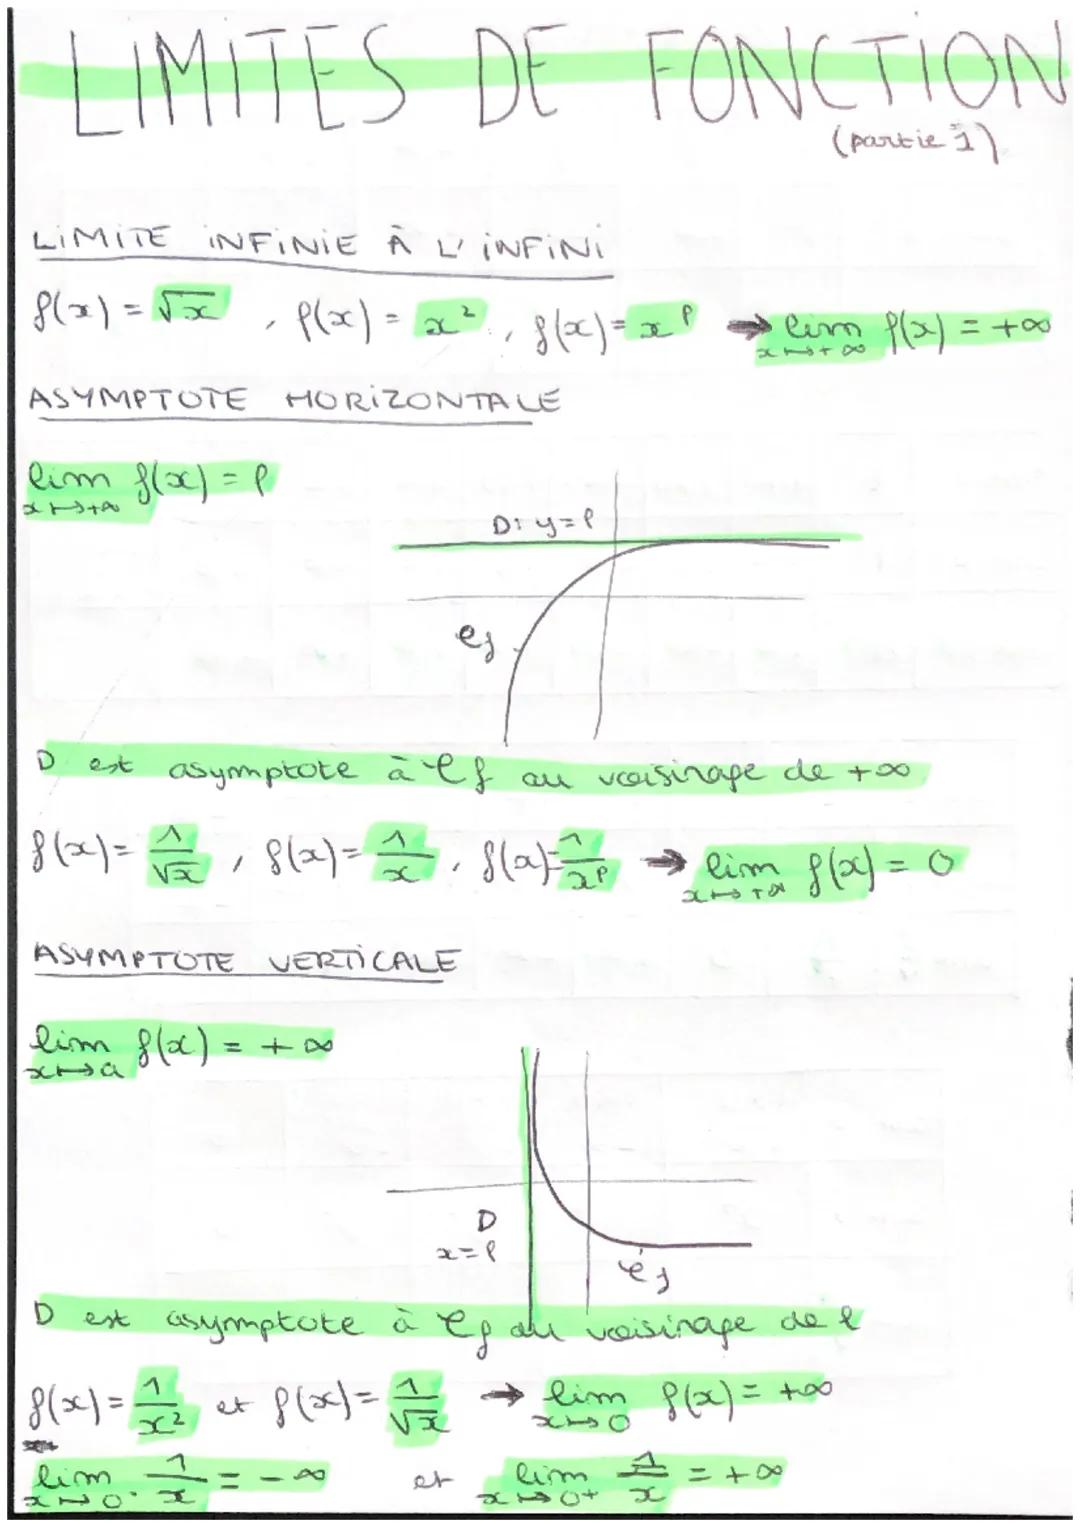 LIMITES DE FONCTION
(partie 1)
LIMITE INFINIE À L'INFINI
f(x) = √x , f(x) = x² , f(x) = xᵖ → lim f(x) = +∞
x↦+∞
ASYMPTOTE HORIZONTALE
lim f(x) = l
x↦+∞
D: y = l
Cf
D est asymptote à Cf au voisinage de +∞
f(x) = 1/√x , f(x) = 1/x , f(x) = 1/xᵖ → lim f(x) = 0
x↦+∞
ASYMPTOTE VERTICALE
lim f(x) = +∞
x↦a
D
x = l
Cf
D est asymptote à Cf au voisinage de l
f(x) = 1/x² et f(x) = 1/√x → lim f(x) = +∞
x↦0
lim 1/x = -∞ et lim 1/x = +∞
x↦0- x↦0+